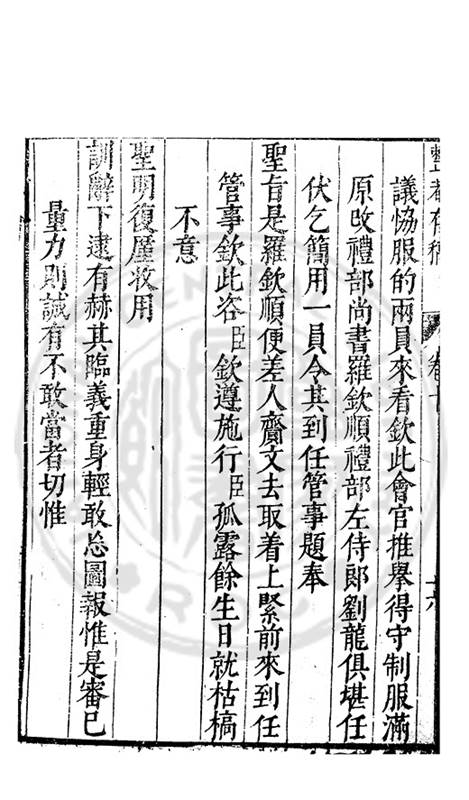 議恊服的兩員來看欽此會官推舉得守制服滿
原改禮部尚書羅欽順禮部左侍郎劉龍俱堪任
伏乞簡用一員令其到任管事題奉
聖旨是羅欽順便差人齎文去取着上緊前來到任
管事欽此咨臣欽遵施行臣孤露餘生日就枯槁
不意
聖明復屢收用
訓辭下逮有赫其臨義重身輕敢忘圖報惟是審己
量力則誠有不敢當者切惟